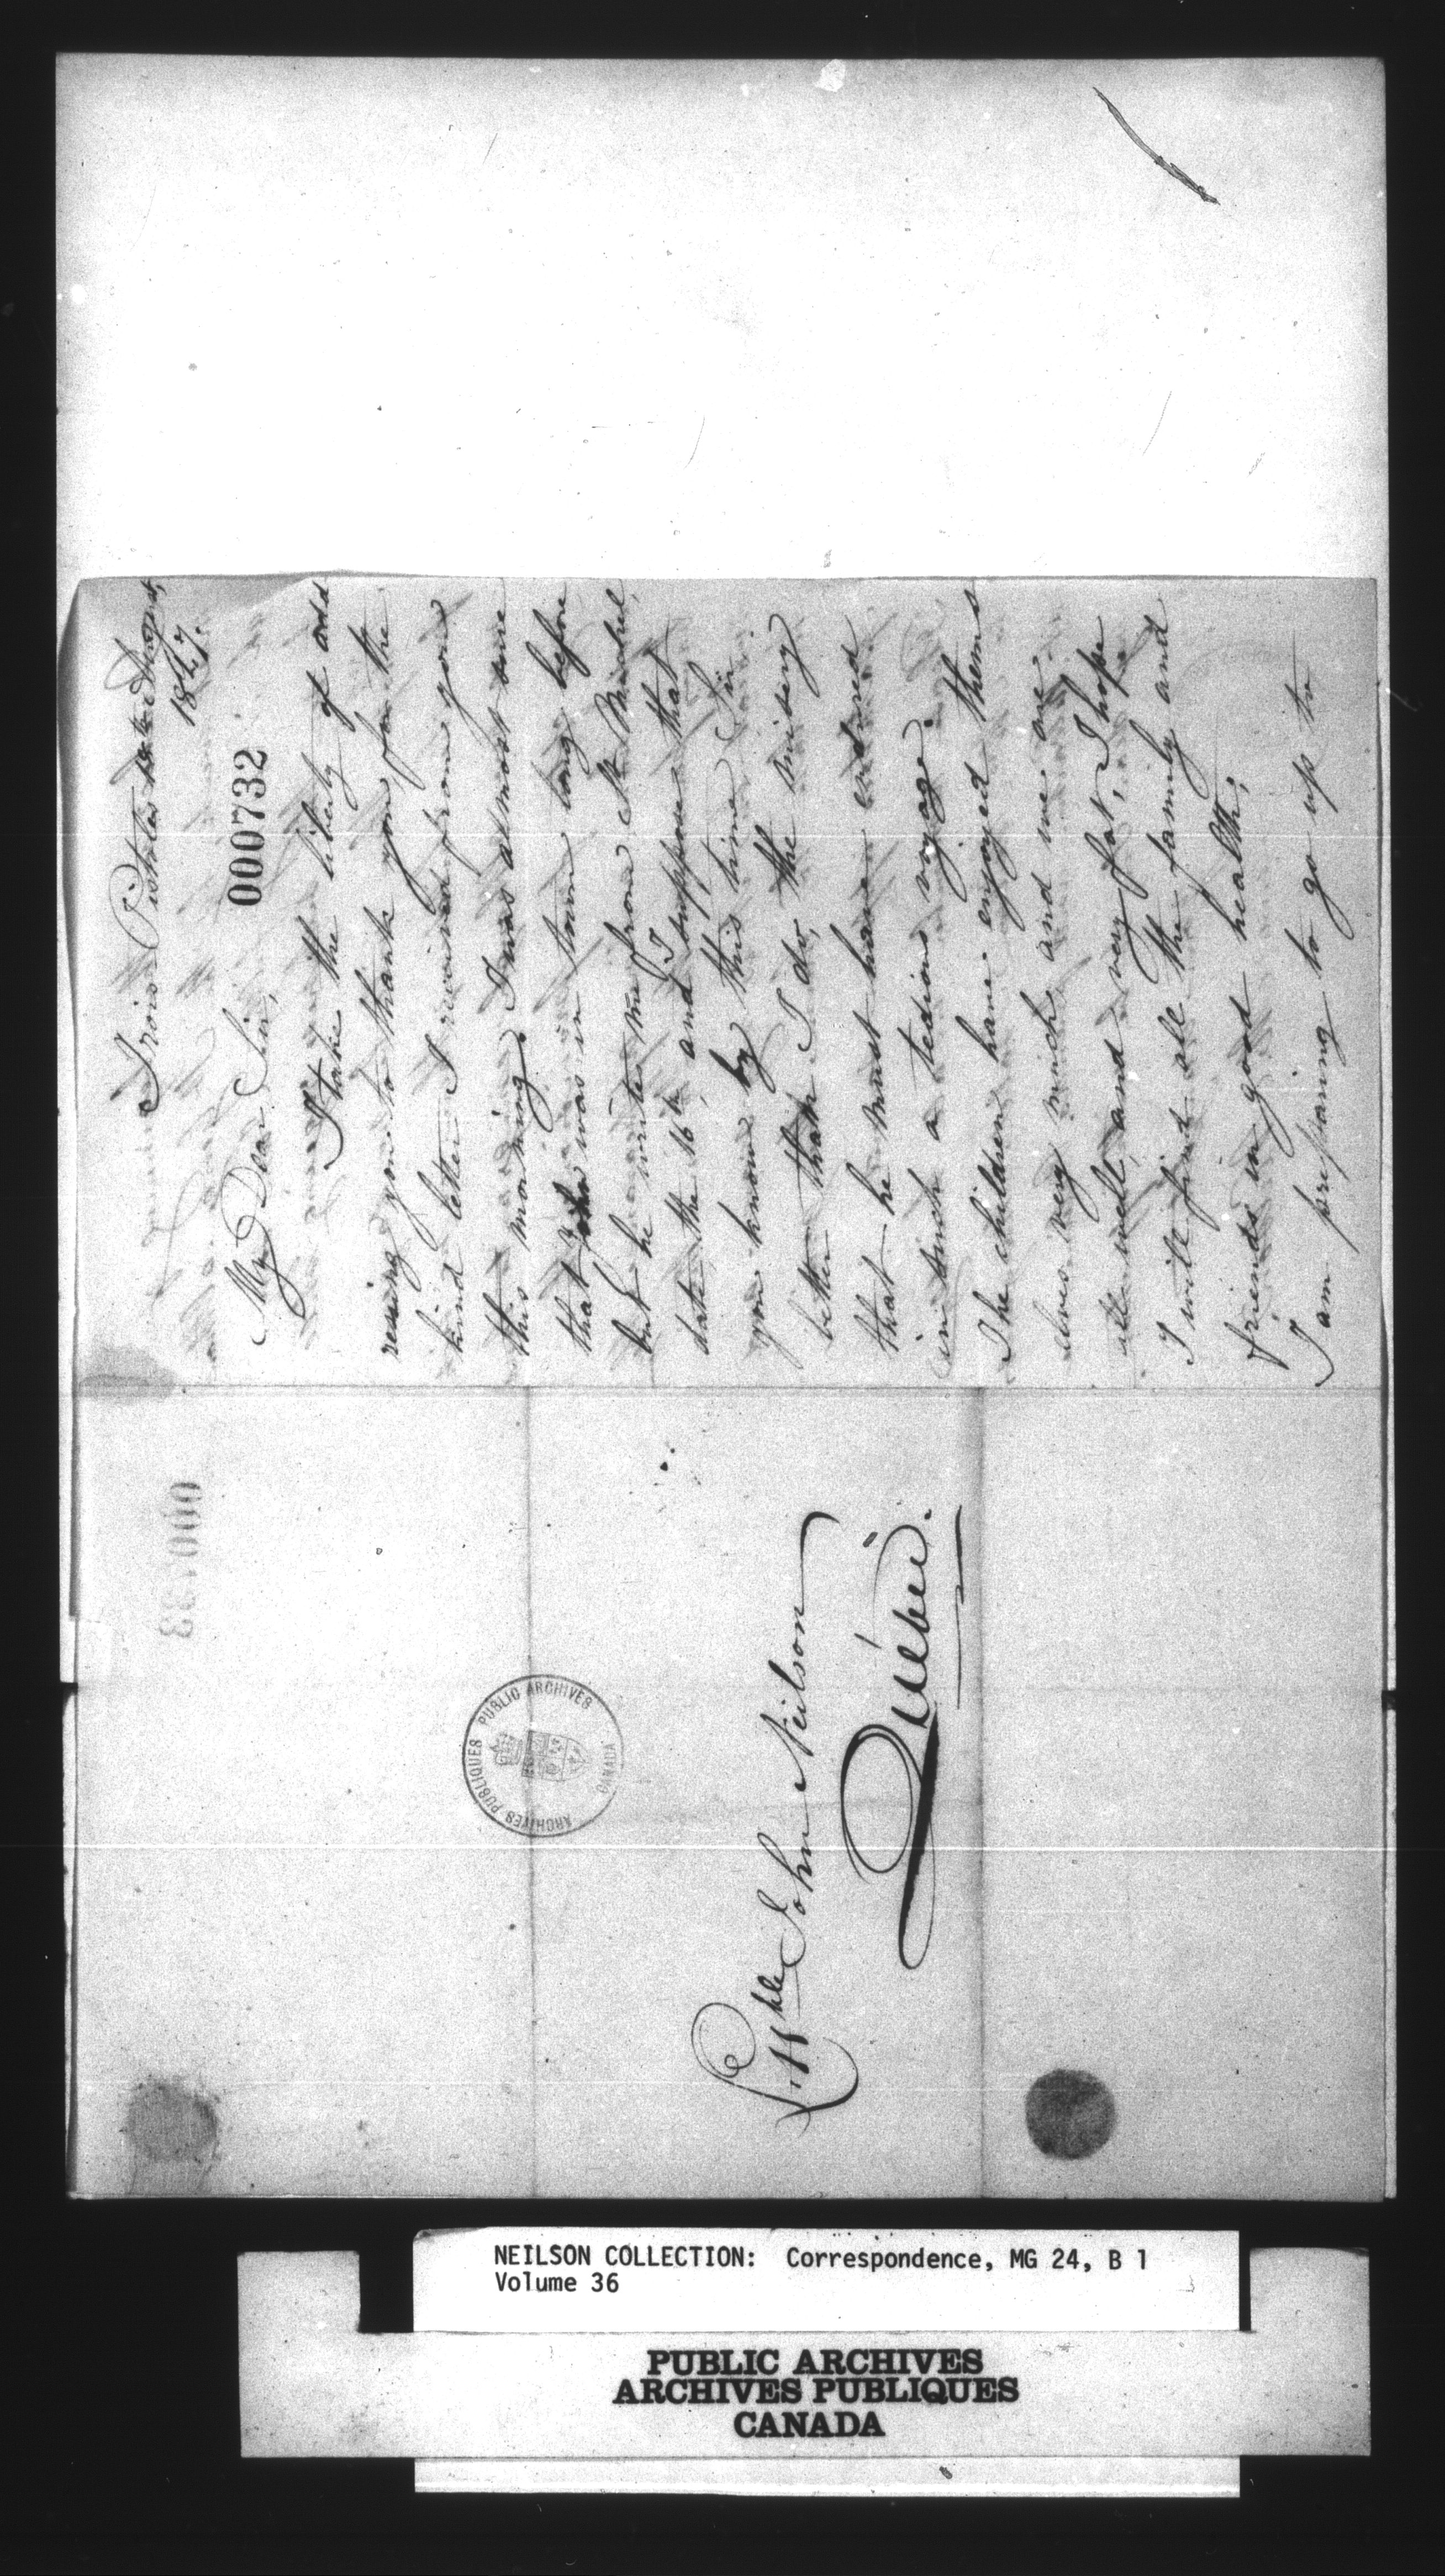 Trois Pistoles 18th August,
1847.
000732
My Dear Sir,
I take the liberty of add
ressing you to thank you for the
kind letter I received from you
this morning. I was almost sure
that John was in town long before
but he wrote me from St Michel,
date the 16th, and I suppose that
you know by this time Sir
better than I do, the misery
that he must have endured
in such a tedious voyage.
The children have enjoyed thems
elves very much and we are
all well, and very fat, I hope
I will find all the family and
friends in good health;
I am preparing to go up to
000733
PUBLIC ARCHIVES
ARCHIVES PUBLIQUES
CANADA
John Neilson
Québec.
NEILSON COLLECTION: Correspondence, MG 24, B 1
Volume 36
PUBLIC ARCHIVES
ARCHIVES PUBLIQUES
CANADA